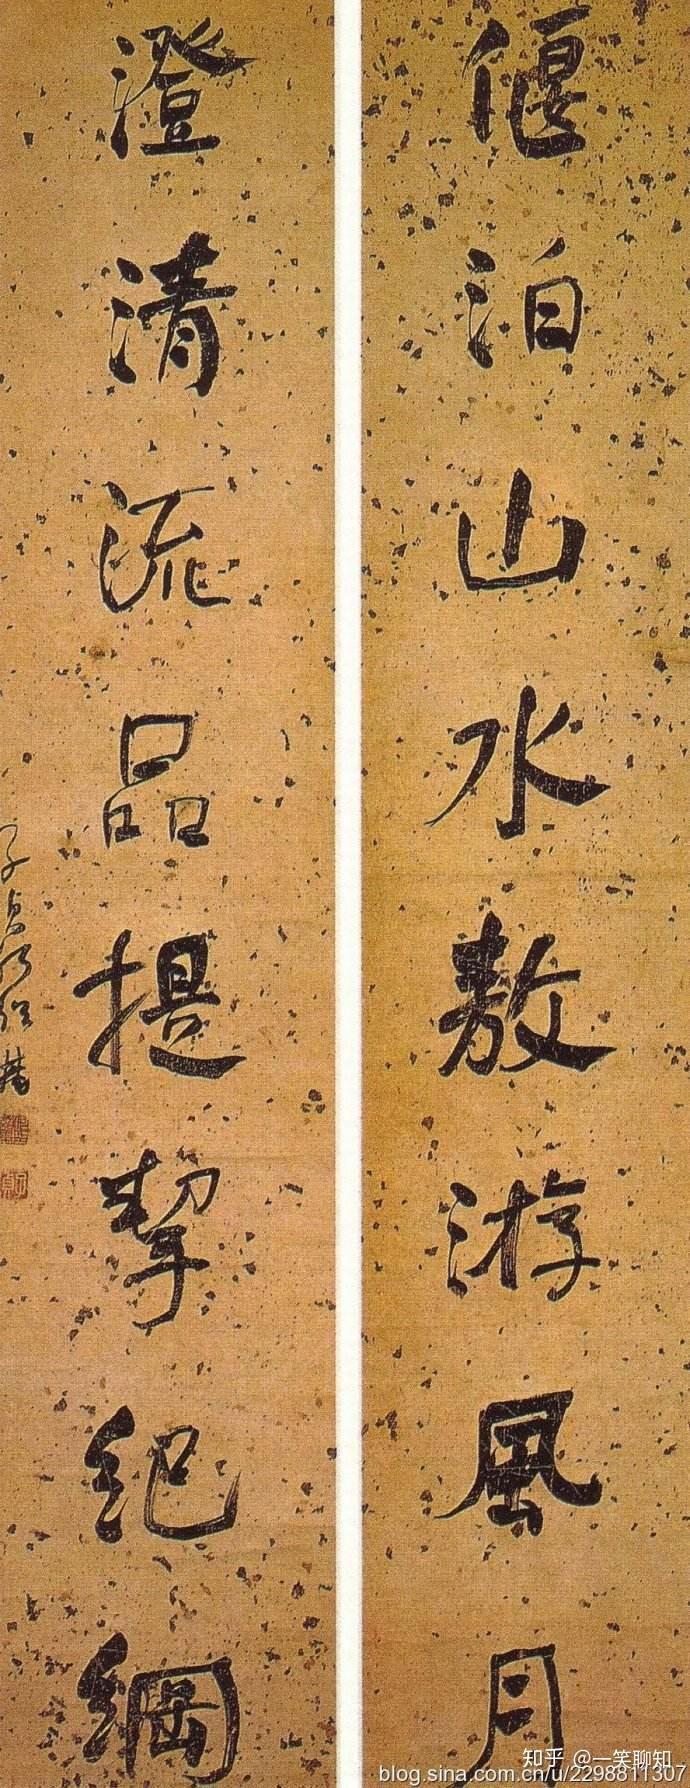 偃泊山水敖游风月
澄清流品提挈纪纲
子贞何绍基
知乎 @一笑聊知
blog.sina.com.cn/u/2298811307